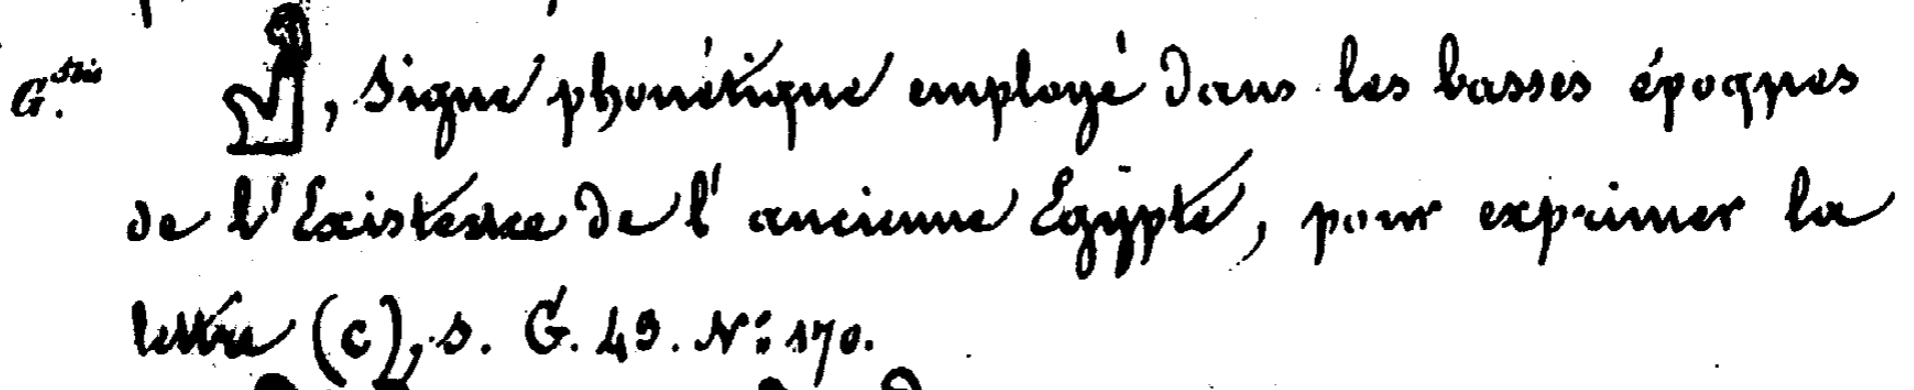 G. , signe phonétique employé dans les basses époques
de l'Existence de l'ancienne Egÿpte, pour exprimer la
lettre (c), s. G. 49. N°: 170.